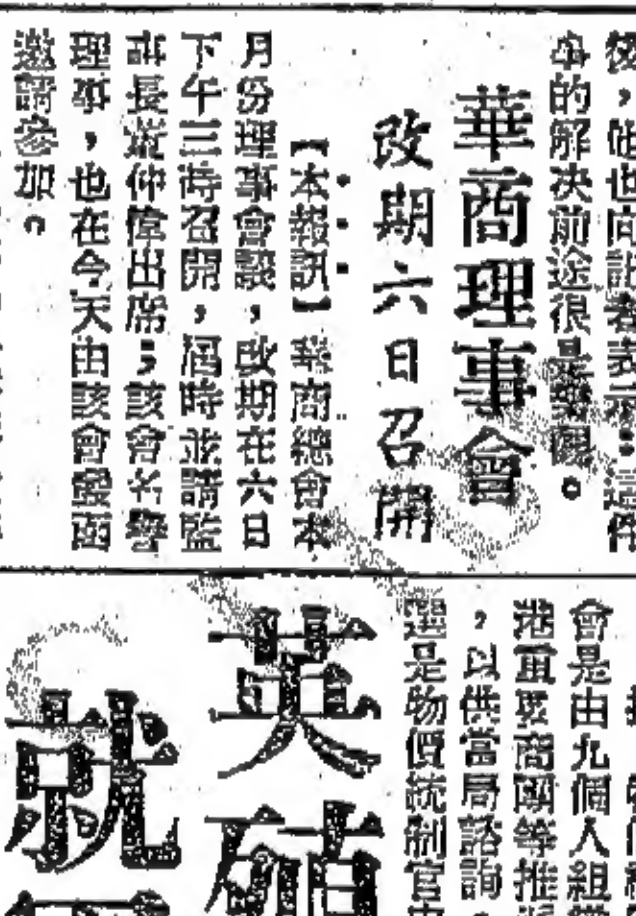 他也向記者表示：這件
事的解决前途很是樂觀。
華商理事會
改期六日召開
【本報訊】華商總會本
月份理事會議，改期在六日
下午三時召開，屆時並請監
事長 仲偉出席；該會名譽
理事，也在今天由該會發函
邀請參加。
會是由九個人組
港重要商團等推
，以供當局諮詢。
選是物價統制官
英
就